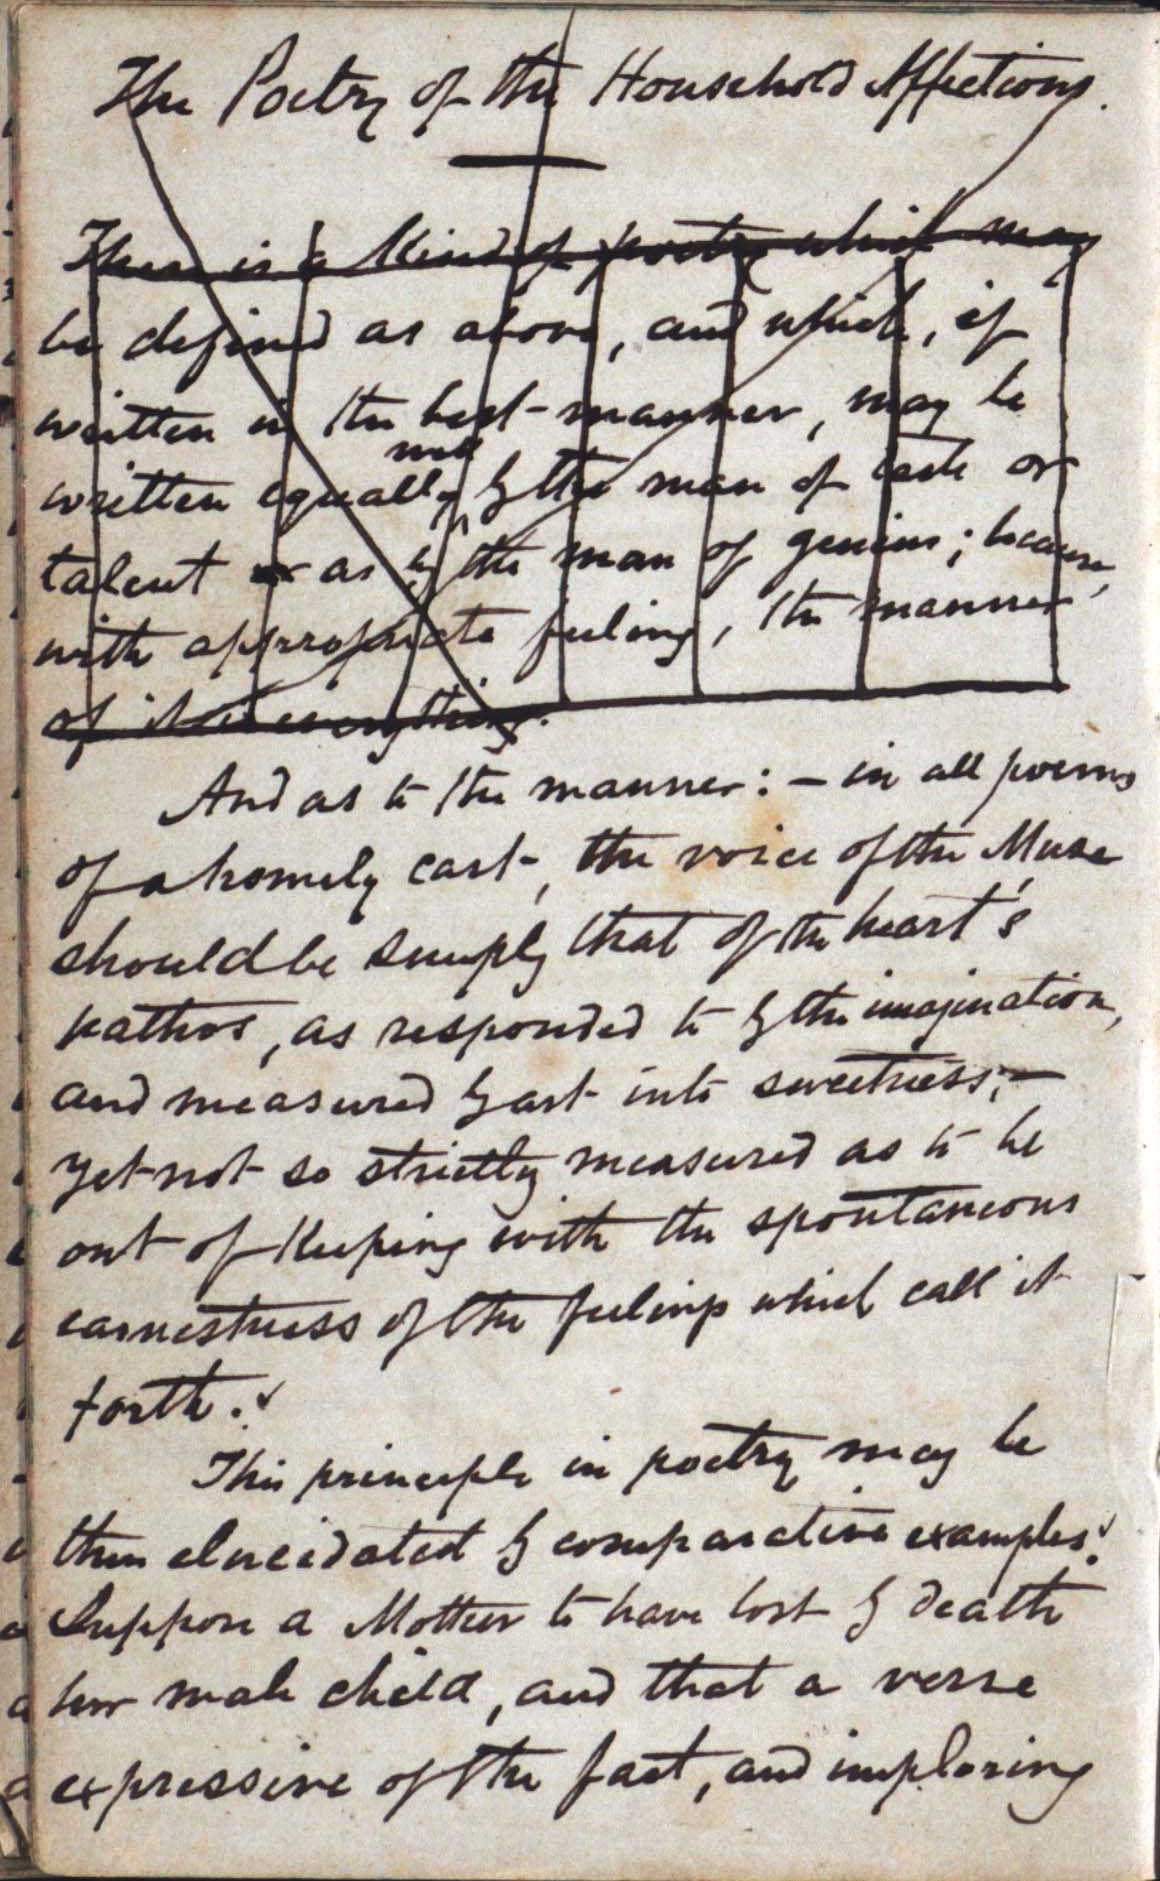 The Poetry of the Household Affections.
There is a kind of poetry which may
be defined as above, and which, if
written in the best manner, may be
well
written equally by the man of taste or
talent as by the man of genius; because,
with appropriate feeling, the manner
of it is everything.
And as to the manner: – in all poems
of a homely cast, the voice of the Muse
should be simply that of the heart's
pathos, as responded to by the imagination,
and measured by art into sweetness; –
yet not so strictly measured as to be
out of keeping with the spontaneous
earnestness of the feelings which call it
forth.
This principle in poetry may be
thus elucidated by comparative examples.
Suppose a Mother to have lost by death
her male child, and that a verse
expressive of the fact, and imploring